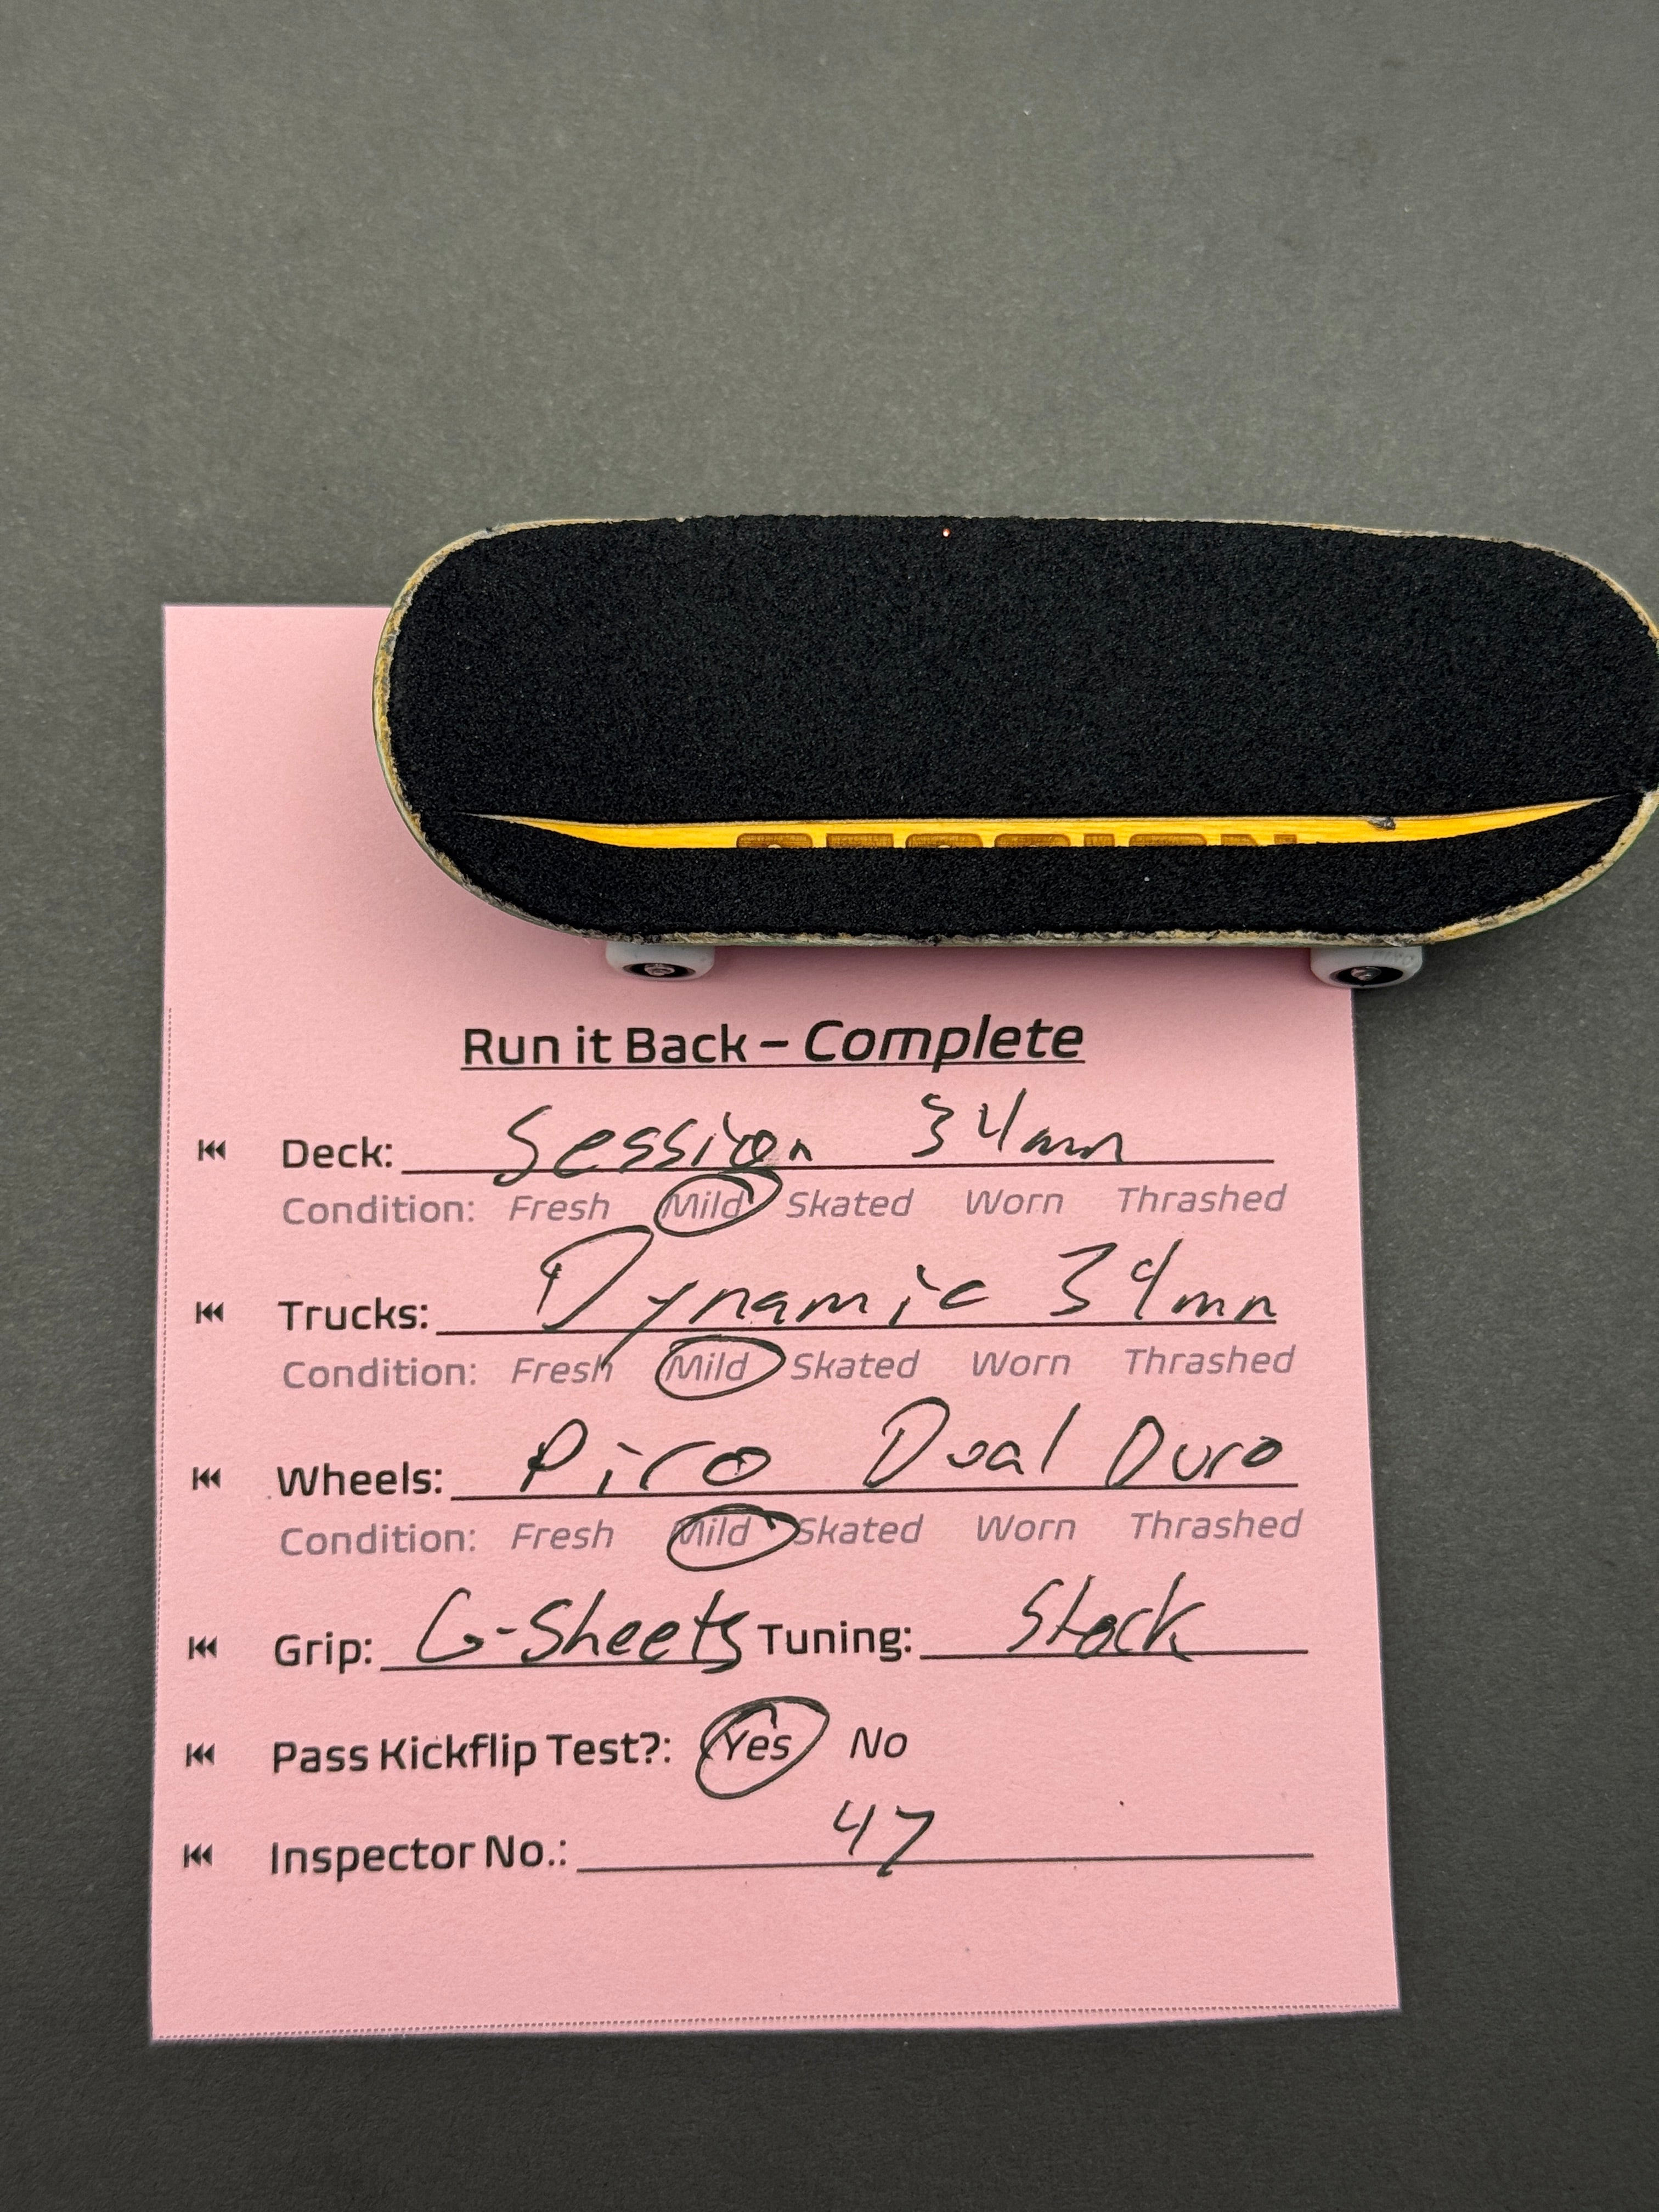 Run it Back – Complete
Deck: Session 34mm
Condition: Fresh Mild Skated Worn Thrashed
Trucks: Dynamic 34mm
Condition: Fresh Mild Skated Worn Thrashed
Wheels: Piro Dual Duro
Condition: Fresh Mild Skated Worn Thrashed
Grip: G-Sheets Tuning: Stock
Pass Kickflip Test?: Yes No
Inspector No.: 47